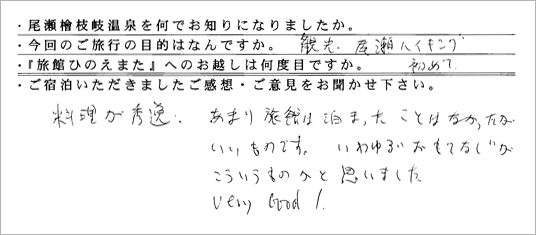 ・尾瀬檜枝岐温泉を何でお知りになりましたか。
・今回のご旅行の目的はなんですか。 観光、尾瀬ハイキング
・『旅館ひのえまた』へのお越しは何度目ですか。 初めて
・ご宿泊いただきましたご感想・ご意見をお聞かせ下さい。
料理が秀逸。 あまり旅館は泊まったことはなかったが
いいものです。 いわゆる"おもてなし"が
こういうものかと思いました
Very Good!